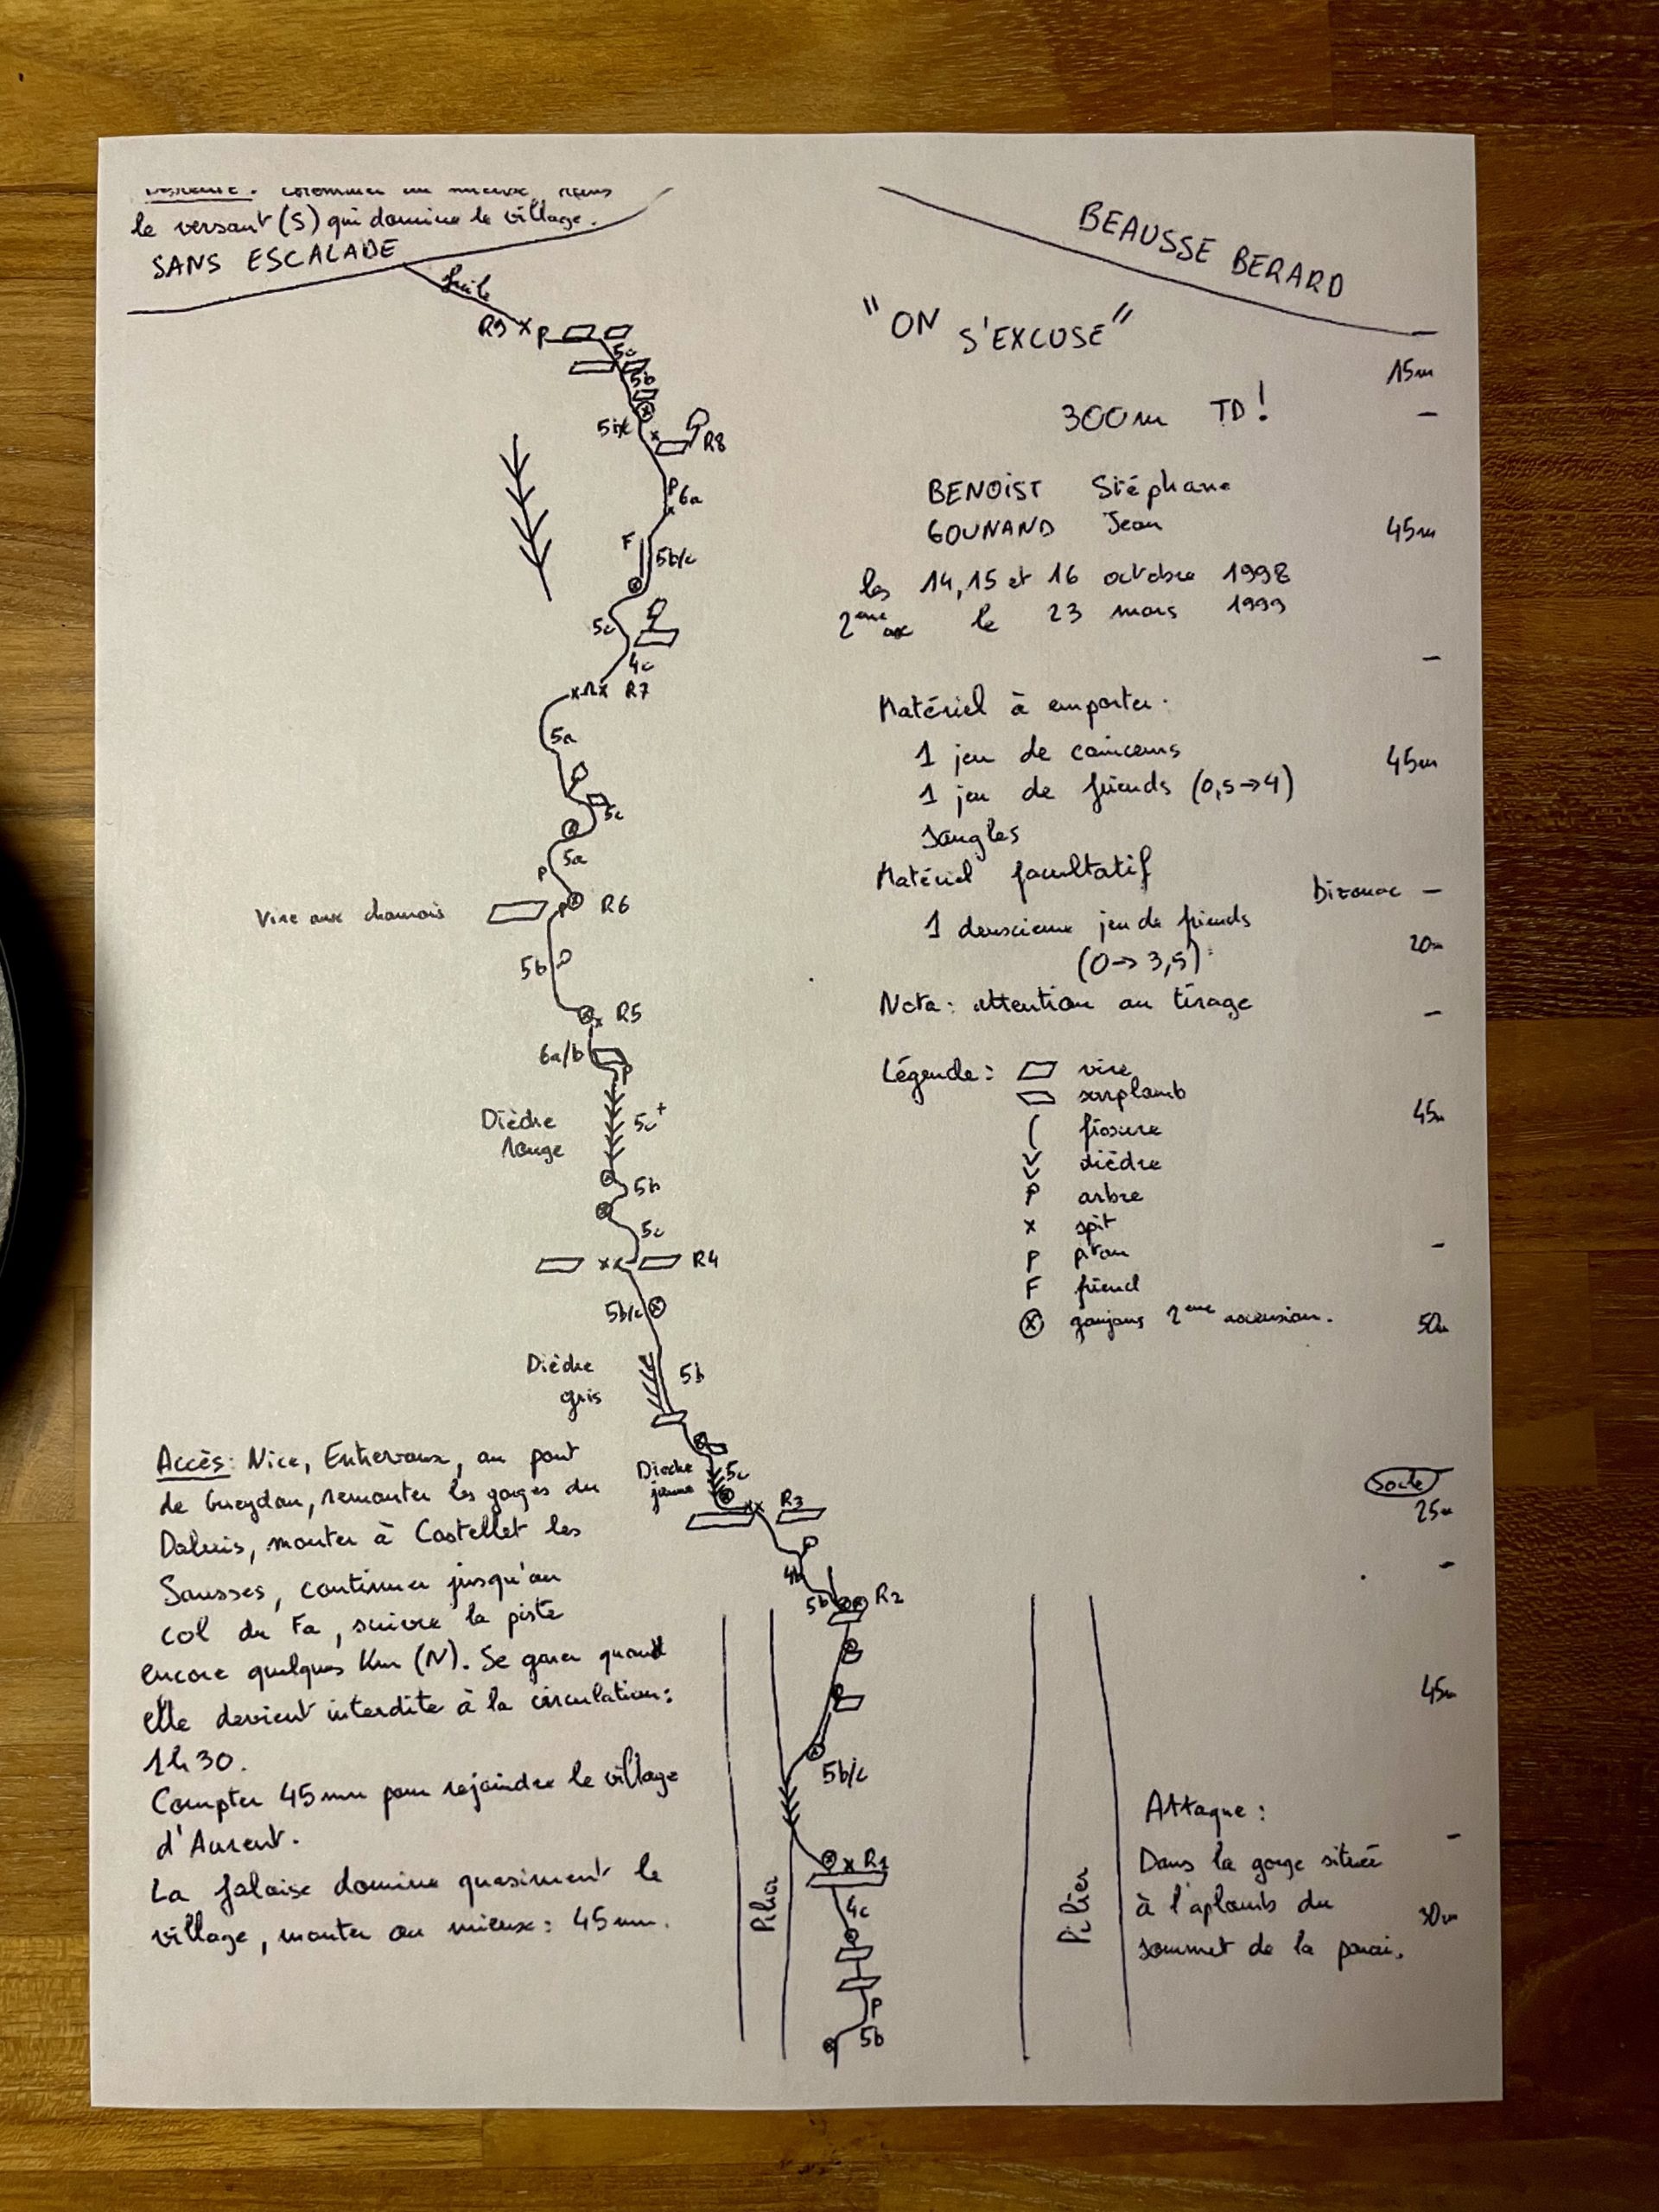 le versant (S) qui domine le village.
SANS ESCALADE
facile
BEAUSSE BERARD
"ON S'EXCUSE"
300m TD!
BENOIST Stéphane
GOUNAND Jean
les 14,15 et 16 octobre 1998
2ème asc le 23 mars 1999
Matériel à emporter.
1 jeu de coinceurs
1 jeu de friends (0,5→4)
Sangles
Matériel facultatif
1 deuxieme jeu de friends
(0→3,5)
Nota: attention au tirage
Légende:
vire
surplomb
fissure
dièdre
P arbre
x spit
P piton
F friend
goujons 2ème ascension.
R9 x P
5c
5b
5b/c
R8
P
6a
F
5b/c
5c
4c
R7
5a
5c
5a
P
R6
Vire aux chamois
5b
R5
6a/b
P
Dièdre
rouge
5c+
5b
5c
xx R4
5b/c
Dièdre
gris
5b
Dièdre
jaune
5c
xx R3
4b
5b
R2
5b/c
x R1
4c
P
5b
Pilier
Pilier
15m
45m
45m
Bizouac
20m
45m
50m
25m
45m
30m
Accès: Nice, Entrevaux, au pont
de Gueydan, remonter les gorges du
Daluis, monter à Castellet les
Sausses, continuer jusqu'au
col du Fa, suivre la piste
encore quelques Km (N). Se garer quand
elle devient interdite à la circulation:
1h30.
Compter 45mn pour rejoindre le village
d'Aurent.
La falaise domine quasiment le
village, monter au mieux: 45mn.
Attaque:
Dans la gorge située
à l'aplomb du
sommet de la paroi.